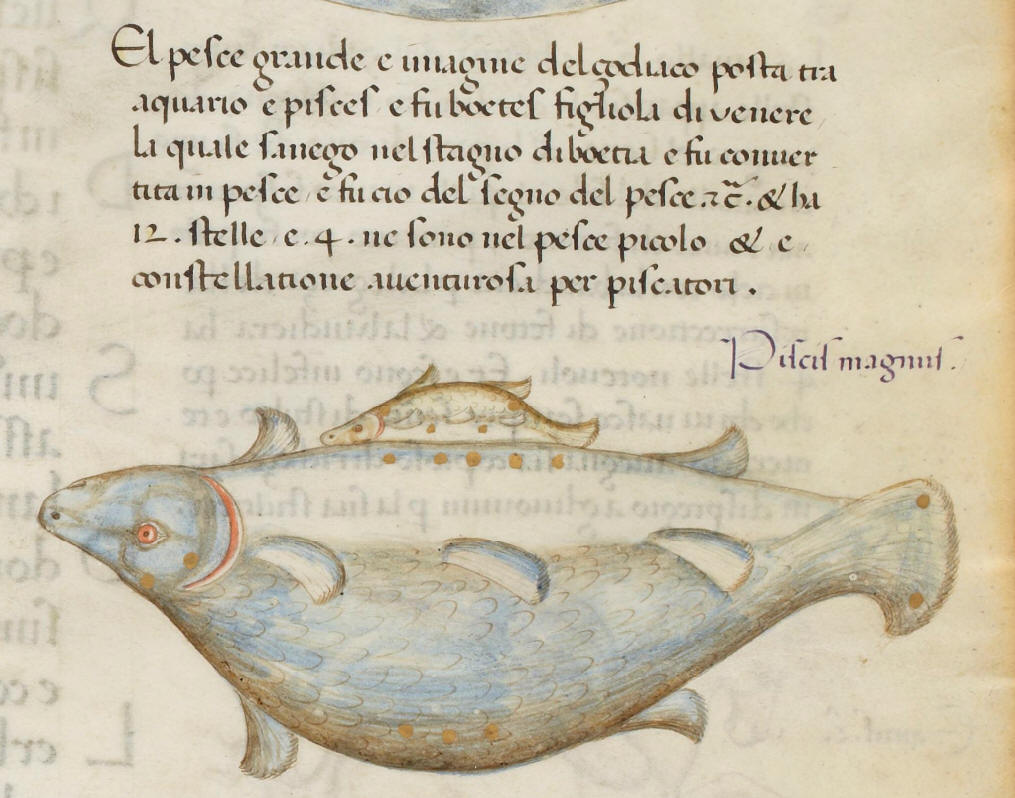 El pesce grande e imagine del çodiaco posta tra
aquario e pisces e fu boetes figliola di venere
la quale s'anego nel stagno di boetia e fu conver
tita in pesce, e fu cio del segno del pesce. & ha
12. stelle, e. 4. ne sono nel pesce picolo & e
constellatione aventurosa per piscatori.
Piscis magnus.